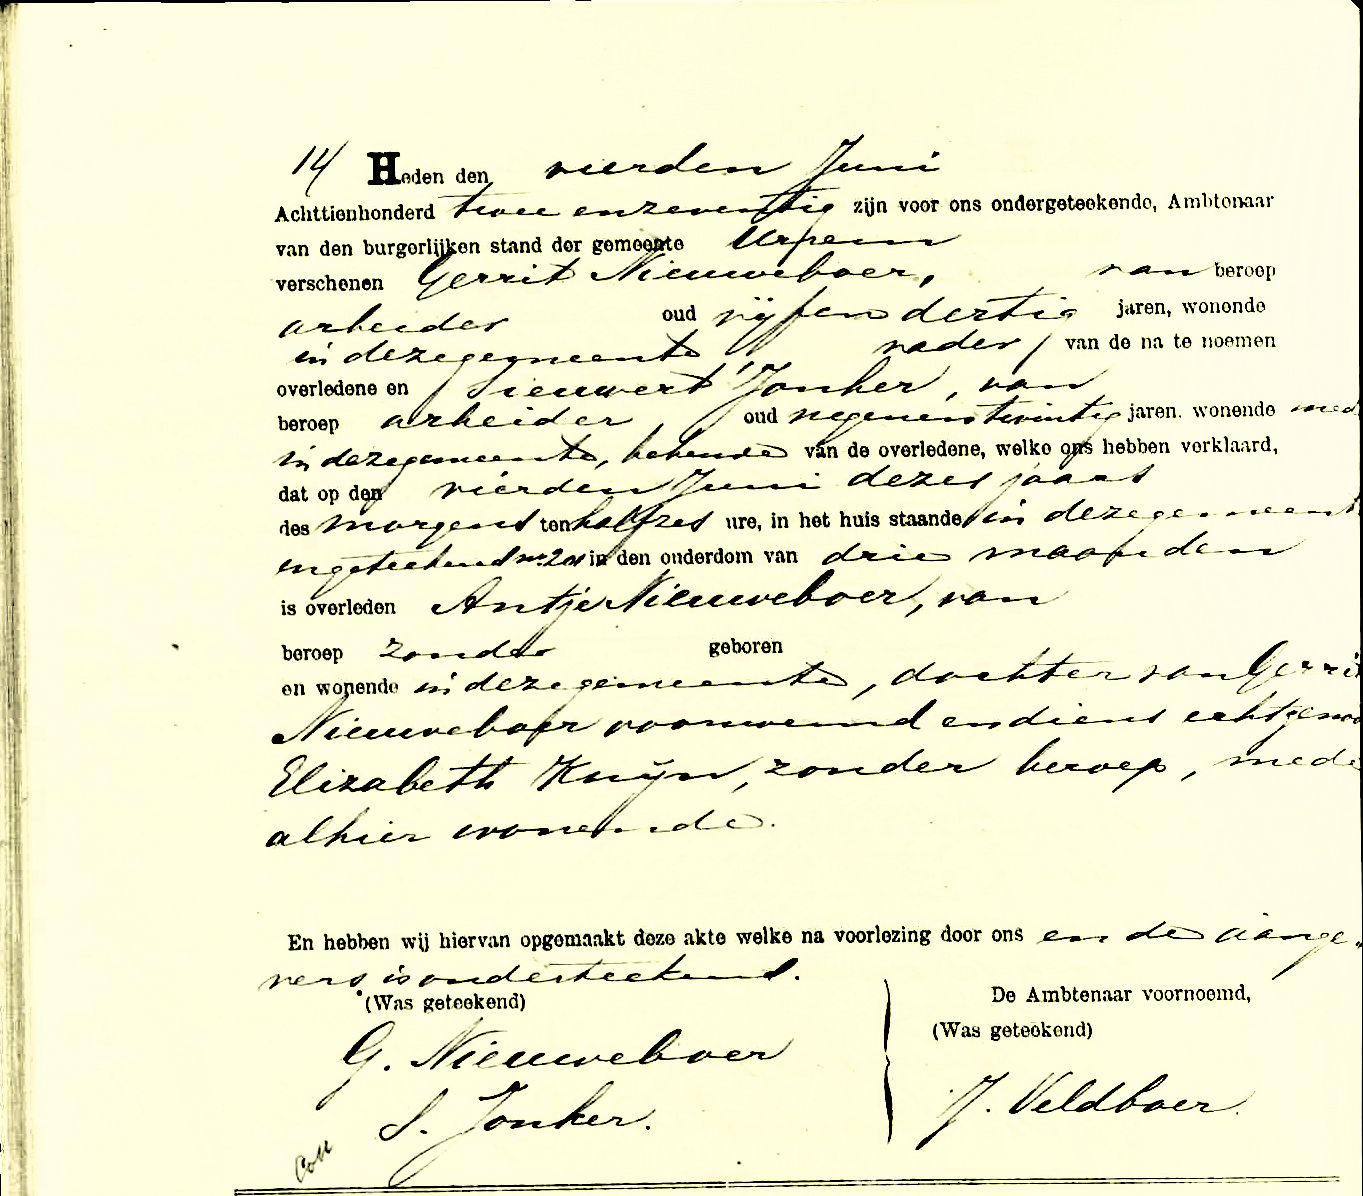 14 Heden den vierden Juni
Achttienhonderd twee en zeventig zijn voor ons ondergeteekende, Ambtenaar
van den burgerlijken stand der gemeente Ursem
verschenen Gerrit Nieuweboer, van beroep
arbeider oud vijf en dertig jaren, wonende
in deze gemeente, vader, van de na te noemen
overledene en Sieuwert Jonker, van
beroep arbeider, oud negenentwintig jaren. wonende mede
in deze gemeente, bekende van de overledene, welke ons hebben verklaard,
dat op den vierden Juni dezes jaars
des morgens ten half zes ure, in het huis staande in deze gemeente
in den onderdom van drie maanden
is overleden Antje Nieuweboer, van
beroep zonder geboren
en wonende in deze gemeente, dochter van Gerrit
Nieuweboer voornoemd en diens echtgenoo
Elizabeth Knijn, zonder beroep, mede
alhier wonende.
En hebben wij hiervan opgemaakt deze akte welke na voorlezing door ons en de aange-
vers is onderteekend.
(Was geteekend) De Ambtenaar voornoemd,
(Was geteekend)
G. Nieuweboer
S. Jonker. J. Veldboer.
Coll